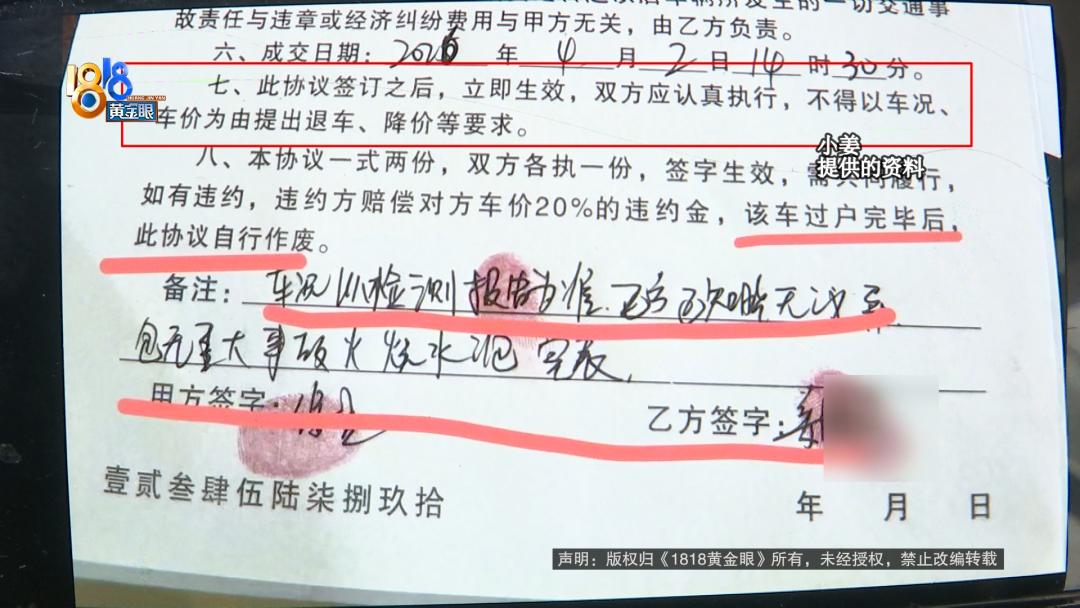 故责任与违章或经济纠纷费用与甲方无关，由乙方负责。
六、成交日期：2026年4月2日14时30分。
1818
黄金眼
七、此协议签订之后，立即生效，双方应认真执行，不得以车况、
车价为由提出退车、降价等要求。
小姜
提供的资料
八、本协议一式两份，双方各执一份，签字生效，需共同履行，
如有违约，违约方赔偿对方车价20%的违约金，该车过户完毕后，
此协议自行作废。
备注：车况以检测报告为准
包无重大事故火烧水泡
甲方签字：
乙方签字：
壹贰叁肆伍陆柒捌玖拾
年 月 日
声明：版权归《1818黄金眼》所有，未经授权，禁止改编转载